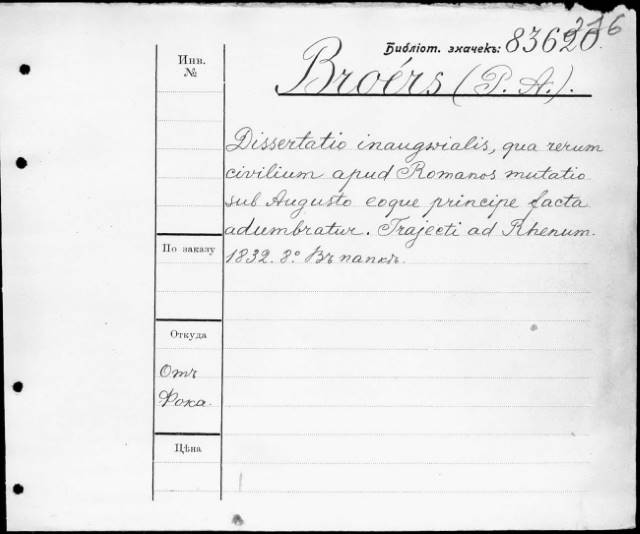 236
Библіот. значекъ: 83620.
Инв. №
Broérs (P. A.).
Dissertatio inaugurialis, qua rerum
civilium apud Romanos mutatio
sub Augusto eoque principe facta
adumbratur. Trajecti ad Rhenum.
По заказу
1832. 8º Въ папкѣ.
Откуда
Отъ
Фока.
Цѣна